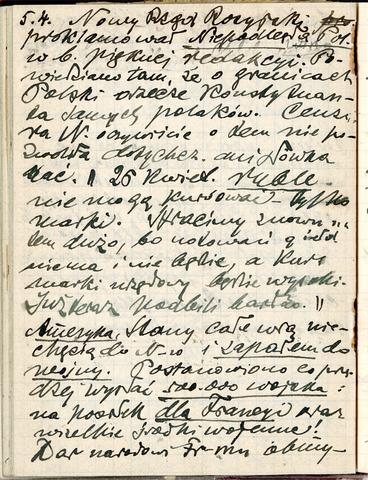 5.4. Nowy Rząd Rosyjski
proklamował Niepodległ. Pol.
w b. pięknej redakcji. Po-
wiedziano tam, że o granicach
Polski orzecze Konstytuan-
ta samych polaków. Cenzu-
ra N. oczywiście o tem nie po-
zwoliła dotychcz. ani słówka
|| 26 Kwiet. ruble
nie mogą kursować – tylko
marki. Stracimy znowu na
tem dużo, bo notowań
niema i nie będzie, a kurs
marki urzędowy będzie wysoki.
Już teraz podbili bardzo. ||
Ameryka, Stany całe wrą nie-
chęcią do N-ów i zapałem do
wojny. Postanowiono co prę-
dzej wysłać 500.000 wojska
na posiłek dla Francyi oraz
wszelkie środki wojenne!
Dar narodowi Fr-mu obmy-